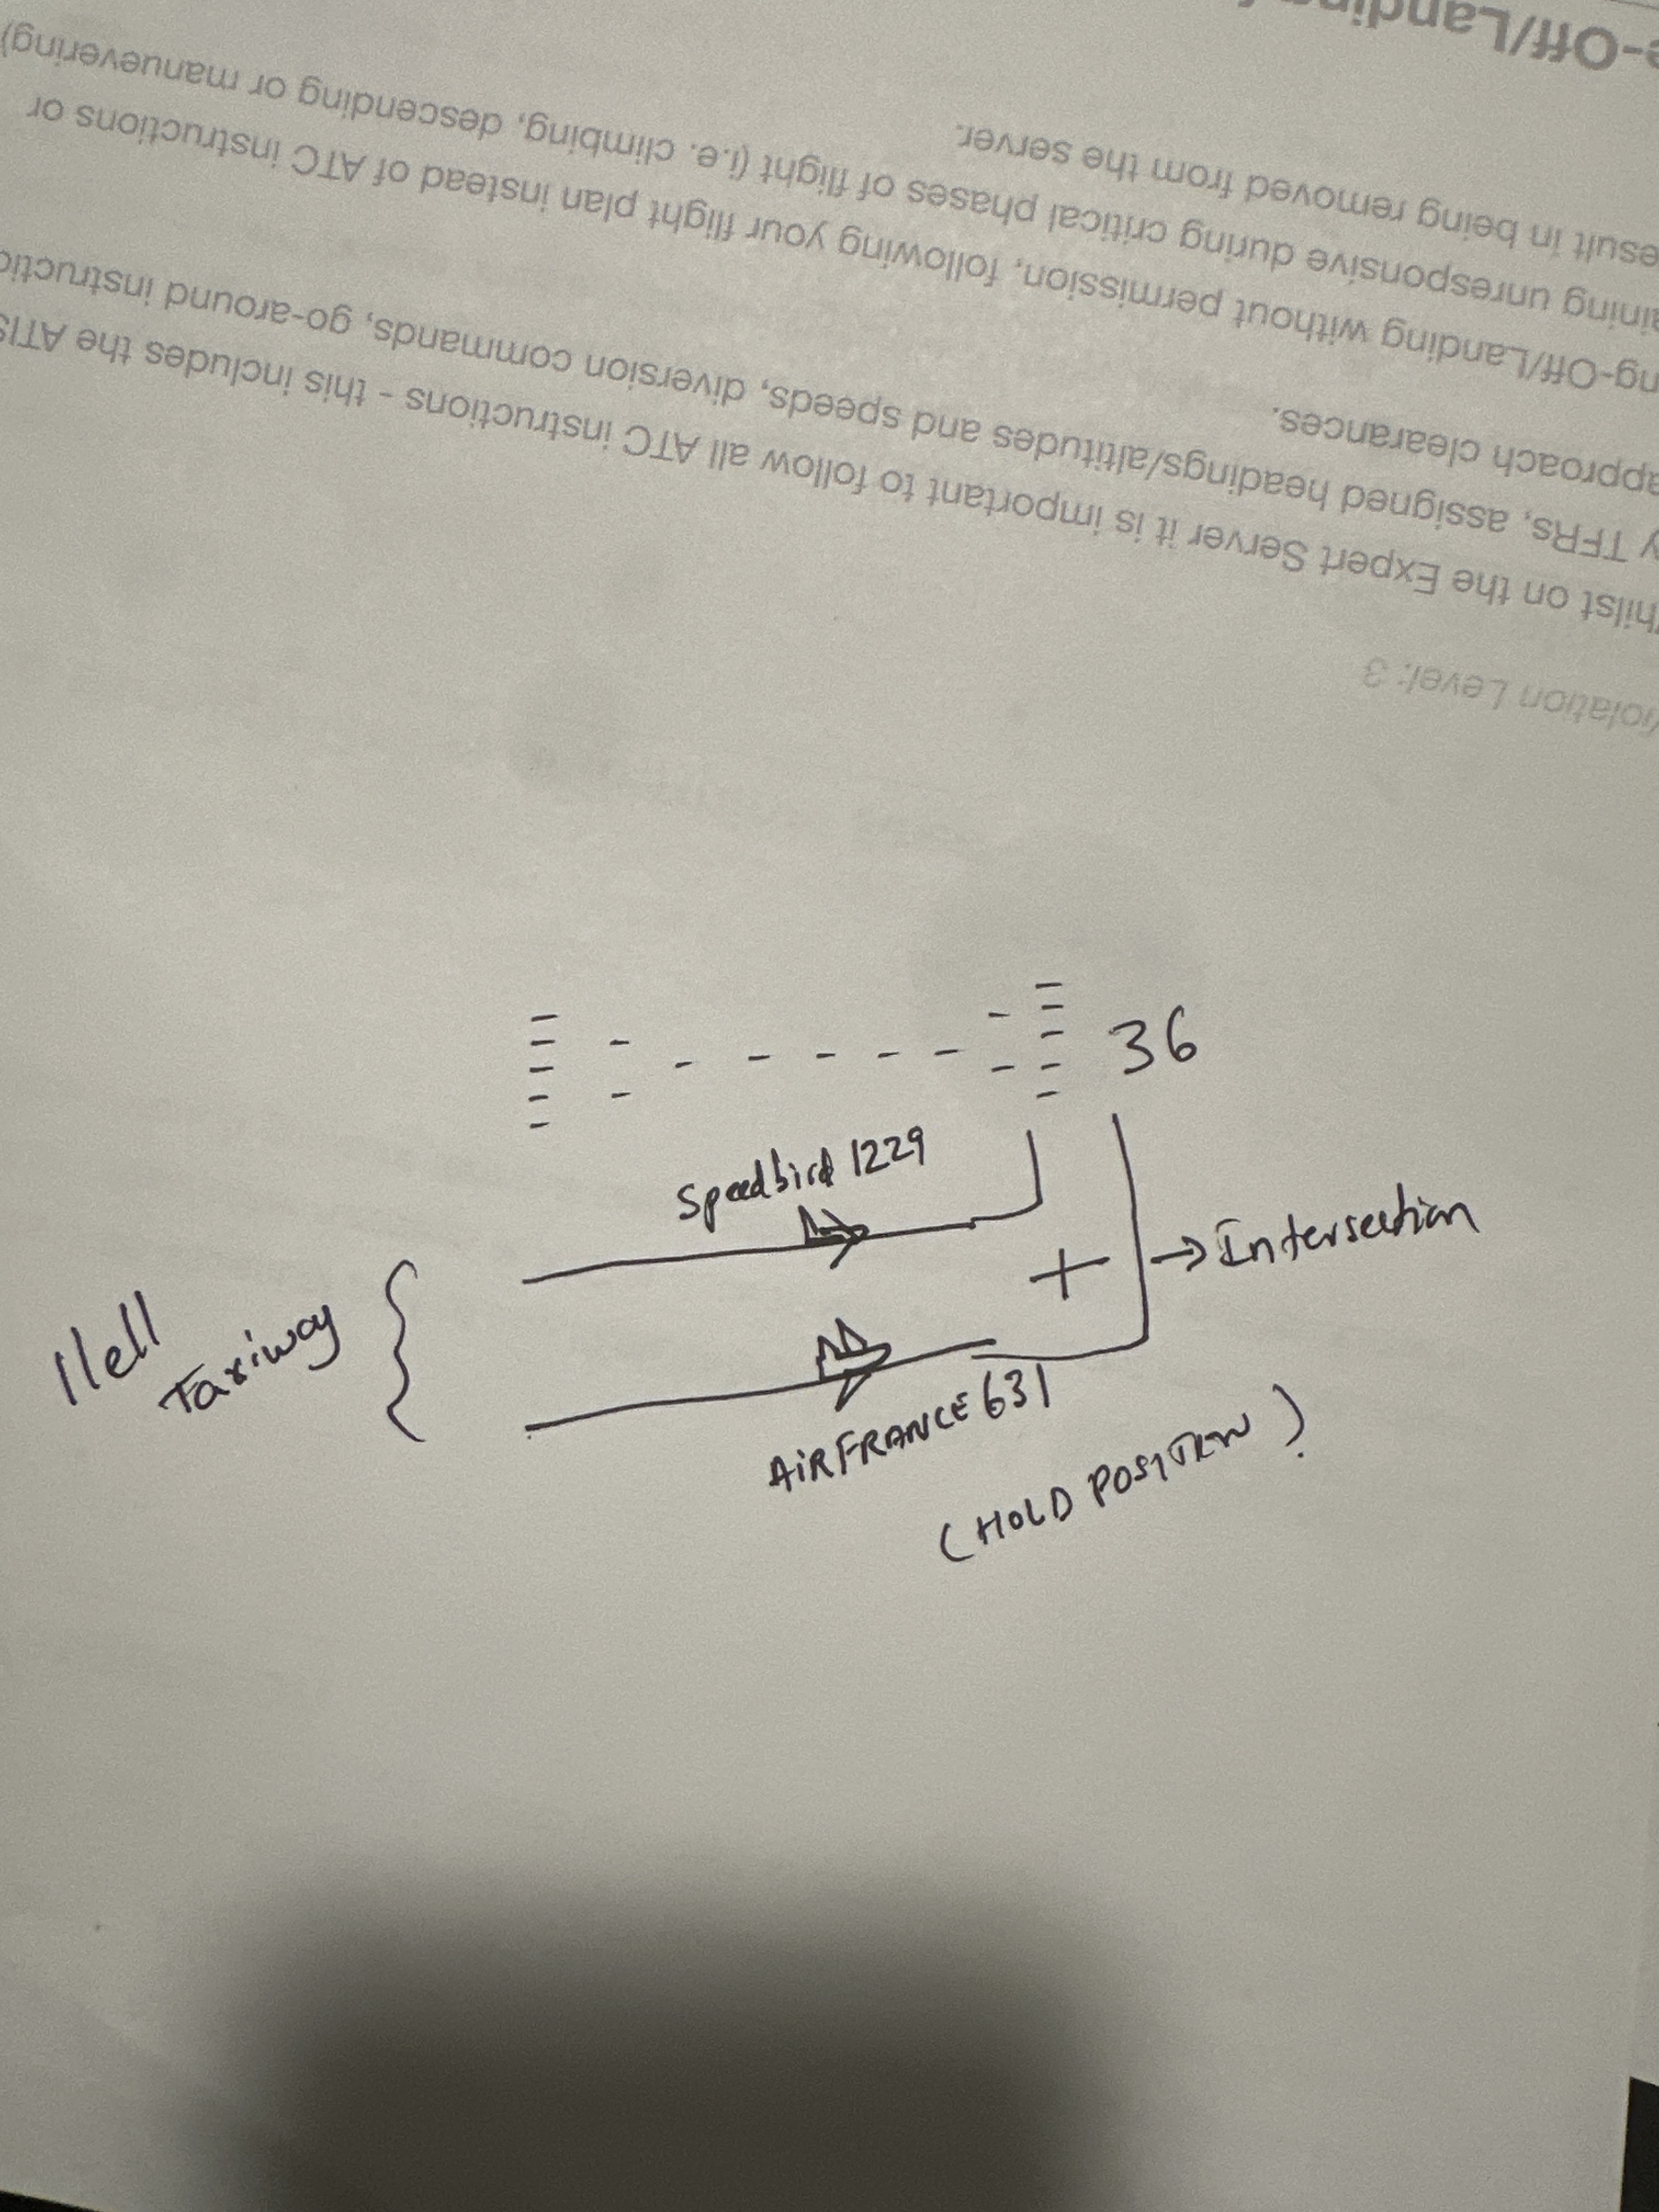 iolation Level: 3
hilst on the Expert Server it is important to follow all ATC instructions - this includes the ATIS
y TFRs, assigned headings/altitudes and speeds, diversion commands, go-around instructio
approach clearances.
ng-Off/Landing without permission, following your flight plan instead of ATC instructions or
aining unresponsive during critical phases of flight (i.e. climbing, descending or manuevering)
esult in being removed from the server.
e-Off/Landing
36
Speedbird 1229
Intersection
llell
Taxiway
AIRFRANCE 631
(HOLD POSITION)